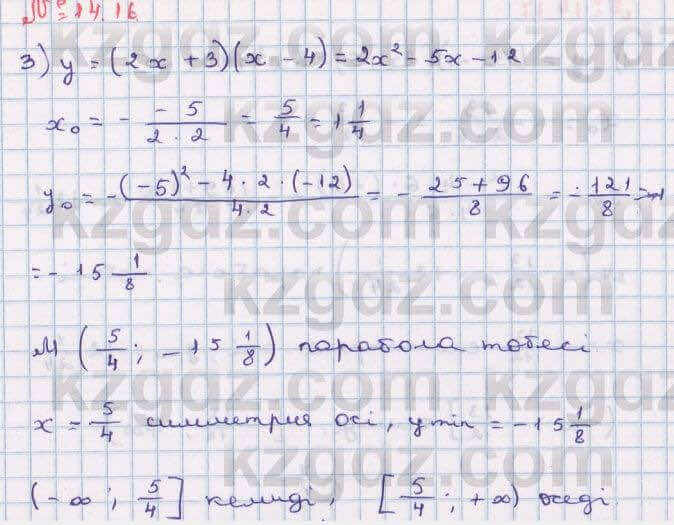 № 14.16
3) y = (2x + 3)(x - 4) = 2x² - 5x - 12
x₀ = - -5/2·2 = 5/4 = 1 1/4
y₀ = - (-5)² - 4·2·(-12)/4·2 = - 25+96/8 = - 121/8 =
= - 15 1/8
M (5/4; -15 1/8) парабола төбесі
x = 5/4 симметрия осі, y min = -15 1/8
(-∞; 5/4] кемиді, [5/4; +∞) өседі.
kzgdz.com
kzgdz.com
kzgdz.com
kzgdz.com
kzgdz.com
kzgdz.com